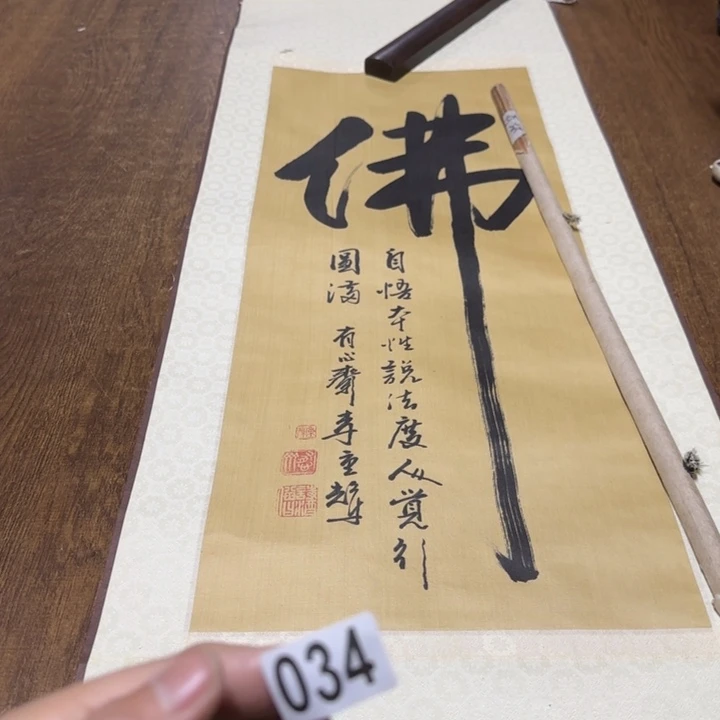 佛
自悟本性說法度人覺行
圓滿
有心齋李重
034